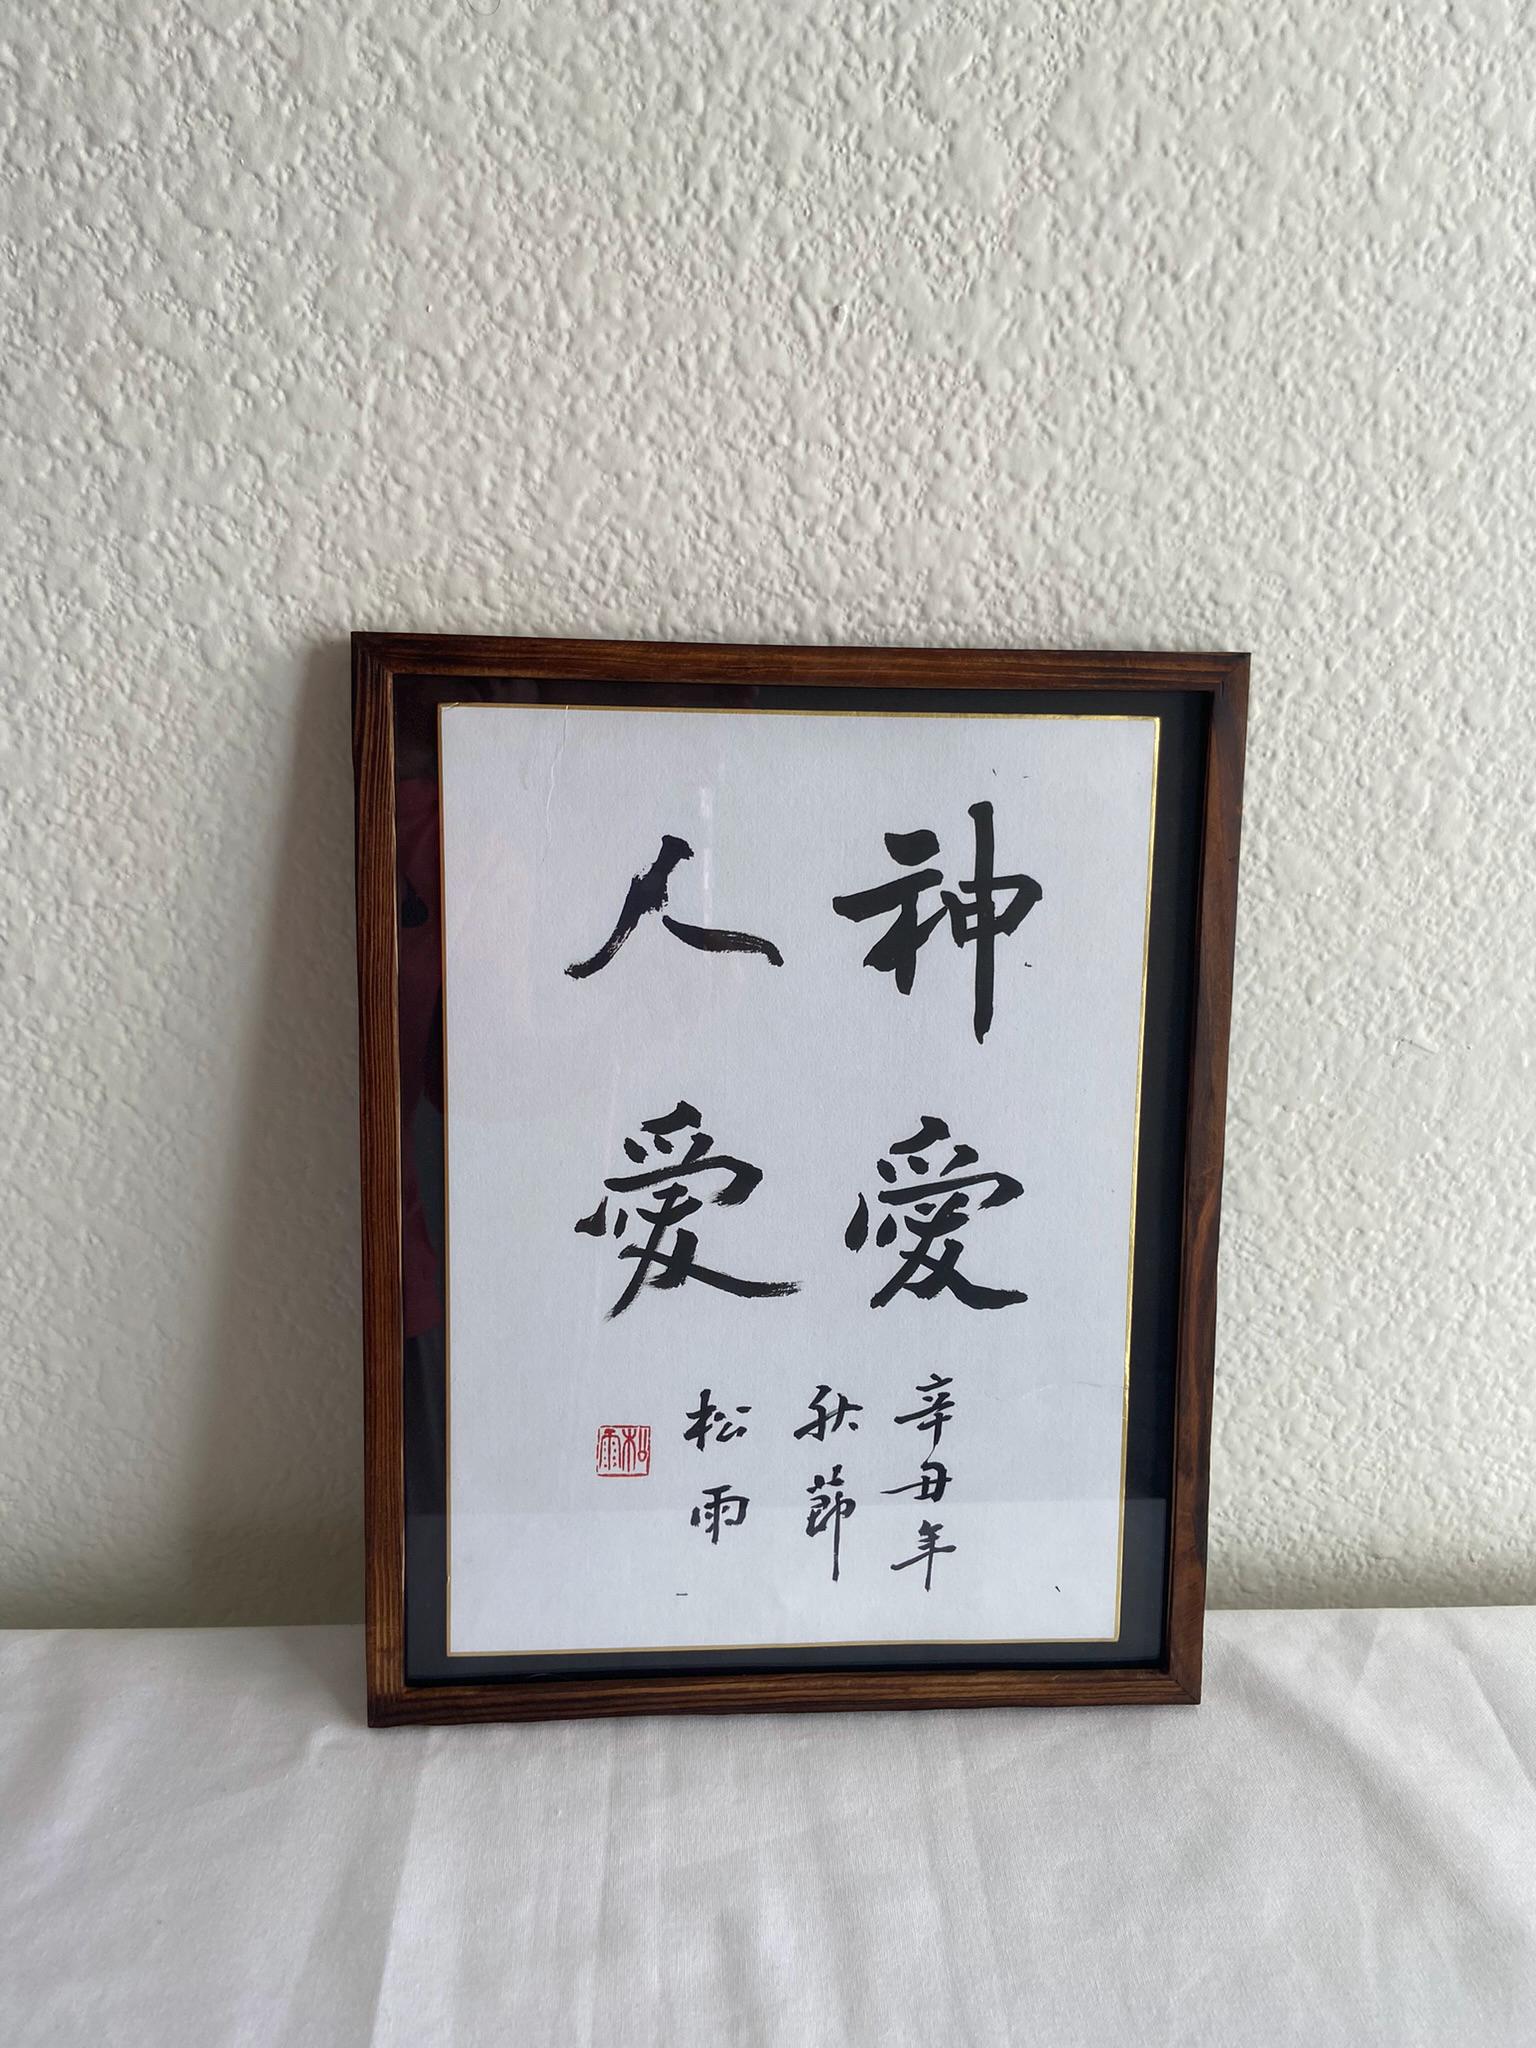 神愛
人愛
辛丑年
秋節
松雨
松雨